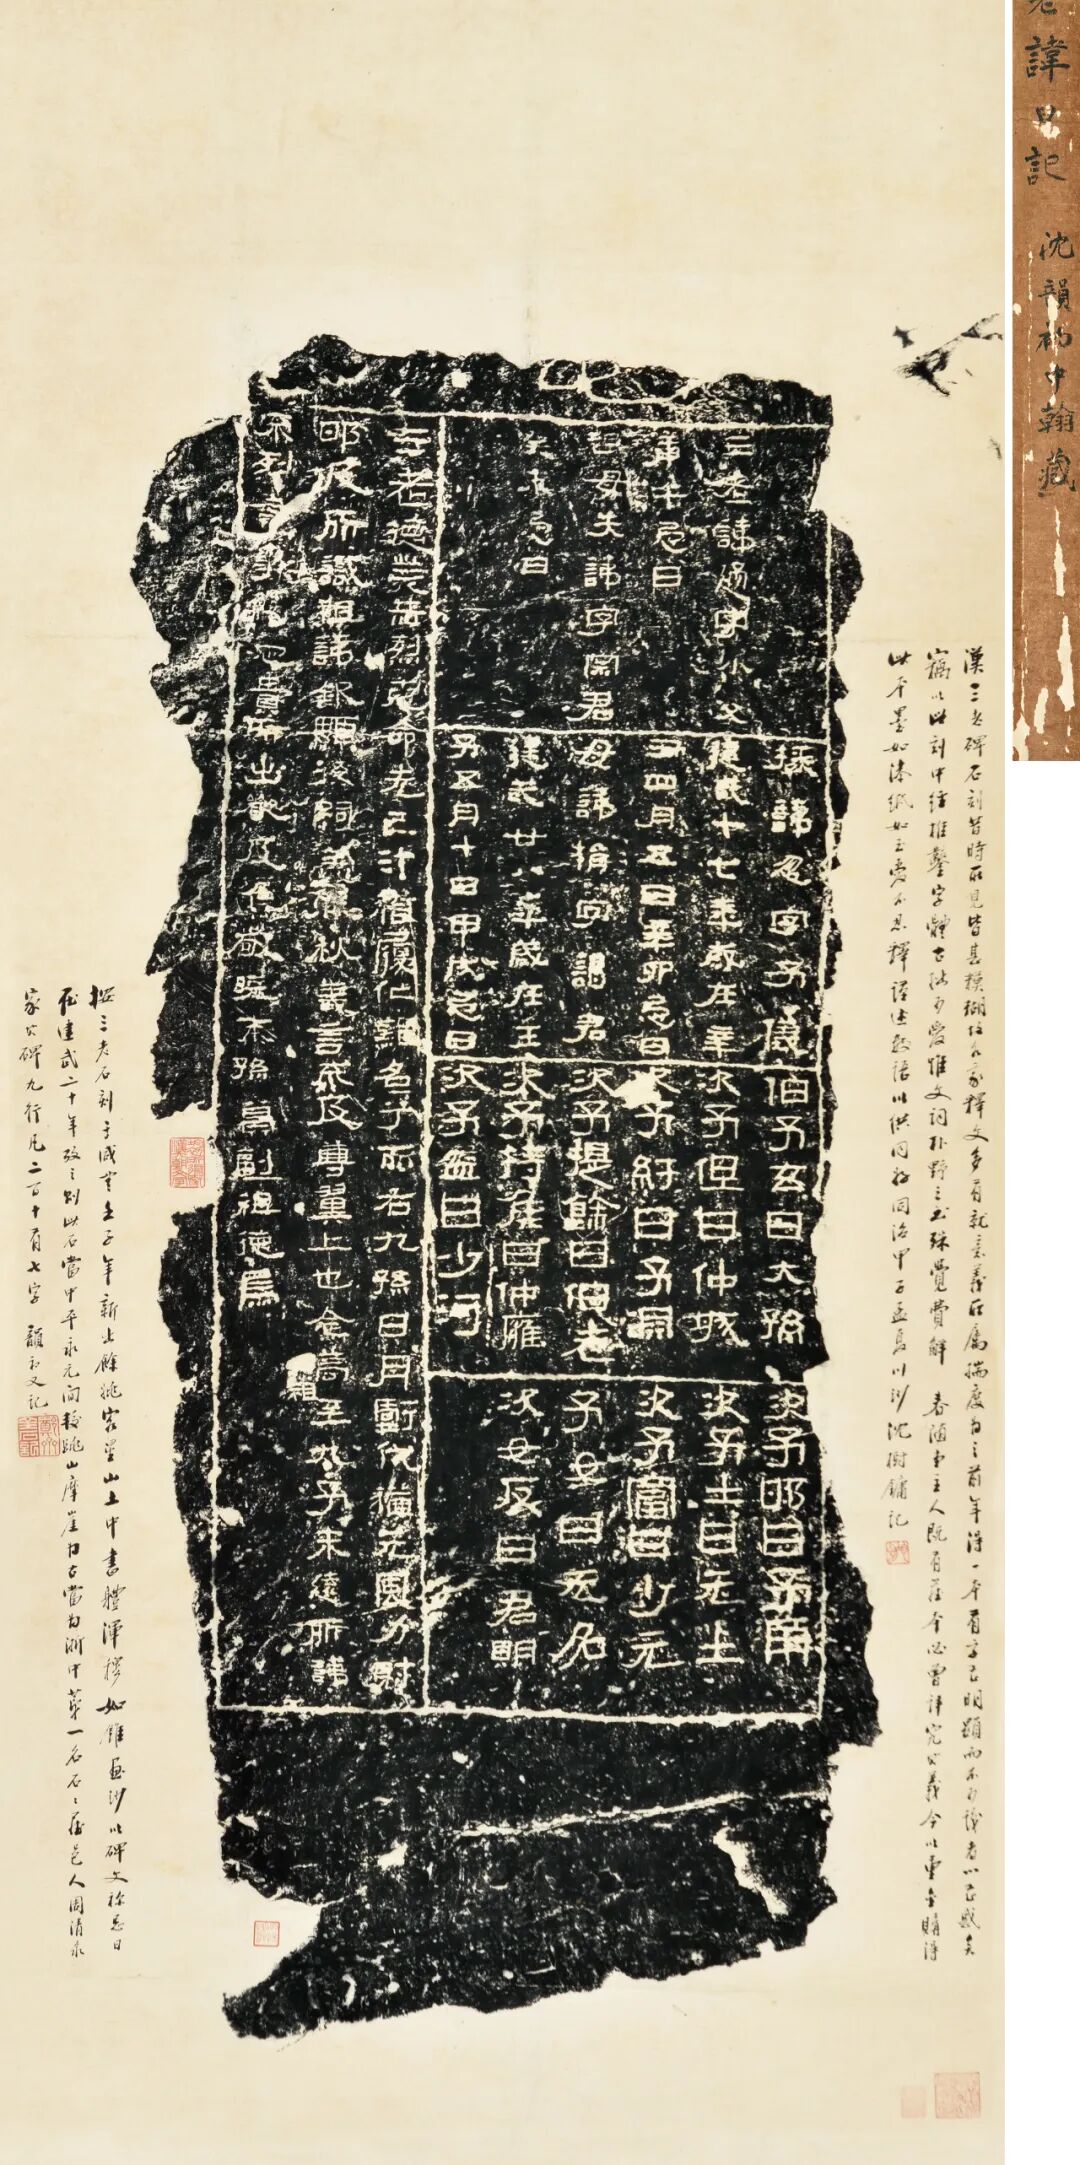 老諱日記 沈韻初中翰藏
漢三老碑石刻昔時所見皆甚模糊故各家釋文多有就意義所屬揣度為之前年得一本有字已明顯而不可識者以已
竊以此刻中經推鑿字體古拙可愛雖文詞朴野之至殊覺費解 春涵主人既有舊本必曾詳究其義今以重金購得
此本墨如漆紙如玉愛不忍釋謹述數語以供同好同治甲子孟夏川沙沈樹鏞記
三老諱通字小父
庚午忌日
祖母失諱字宗君
癸未忌日
掾諱忽字子儀
建武十七年歲在辛
丑四月五日辛卯忌日
母諱捐字謁君
建武廿八年歲在壬
子五月十日甲戌忌日
伯子玄曰大孫
次子但曰仲城
次子紆曰子淵
次子提餘曰伯老
次子持侯曰仲雍
次子盆曰少河
次子邯曰子南
次子士曰元士
次子富曰少元
子女曰无名
次女反曰君明
三老德業赫烈克命先己汁稽履化難名兮而右九孫日月虧代猶元風力射
邯及所識祖諱欽顯後嗣蓋春秋義言不及尊翼上也念高祖至九子未遠所諱
不列言事觸忌貴所出嚴及焦敬曉末孫冀副祖德焉
三老石刻于咸豐壬子年新出餘姚客星山土中書體渾穆如錐畫沙以碑文忌日
在建武二十年攷之則此石當中平永元間較跳山摩崖為古當為浙中第一名石石藏邑人周清泉
家其碑九行凡二百十有七字 韻初又記